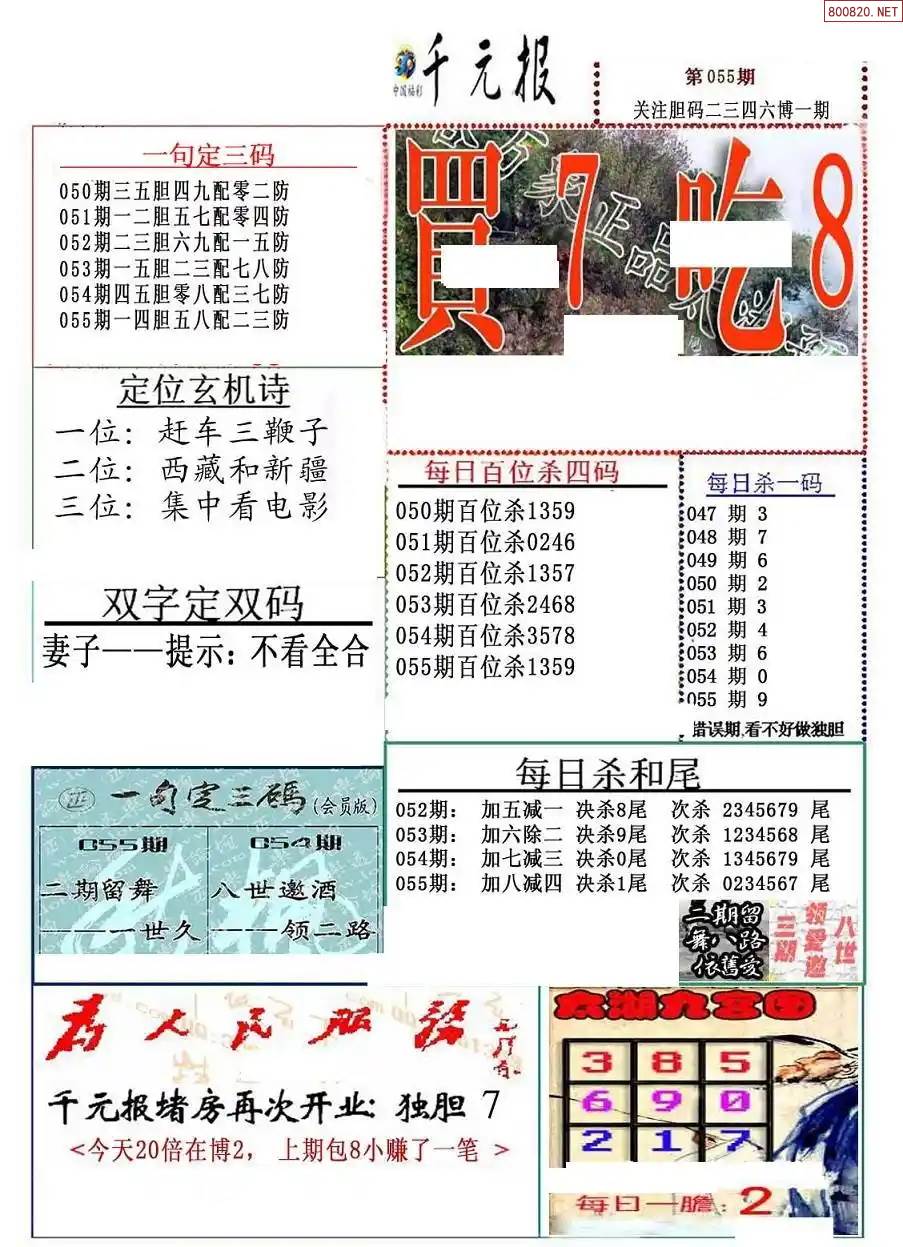 800820.NET
中国福彩
千元报
第055期
关注胆码二三四六博一期
一句定三码
050期三五胆四九配零二防
051期一二胆五七配零四防
052期二三胆六九配一五防
053期一五胆二三配七八防
054期四五胆零八配三七防
055期一四胆五八配二三防
買7吃8
定位玄机诗
一位：赶车三鞭子
二位：西藏和新疆
三位：集中看电影
每日百位杀四码
050期百位杀1359
051期百位杀0246
052期百位杀1357
053期百位杀2468
054期百位杀3578
055期百位杀1359
每日杀一码
047 期 3
048 期 7
049 期 6
050 期 2
051 期 3
052 期 4
053 期 6
054 期 0
055 期 9
错误期,看不好做独胆
双字定双码
妻子——提示：不看全合
每日杀和尾
052期： 加五减一 决杀8尾 次杀 2345679 尾
053期： 加六除二 决杀9尾 次杀 1234568 尾
054期： 加七减三 决杀0尾 次杀 1345679 尾
055期： 加八减四 决杀1尾 次杀 0234567 尾
一句定三碼(会员版)
055期
二期留舞
———一世久
054期
八世邀酒
———领二路
三期留
舞八路
依舊愛
三期
领爱邀
八世
为人民服务
千元报堵房再次开业：独胆 7
<今天20倍在博2， 上期包8小赚了一笔 >
太湖九宫图
3 8 5
6 9 0
2 1 7
每日一膽：2